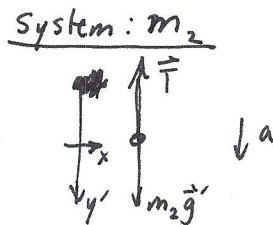 System: m₂
T⃗
x
a
y'
m₂g⃗'